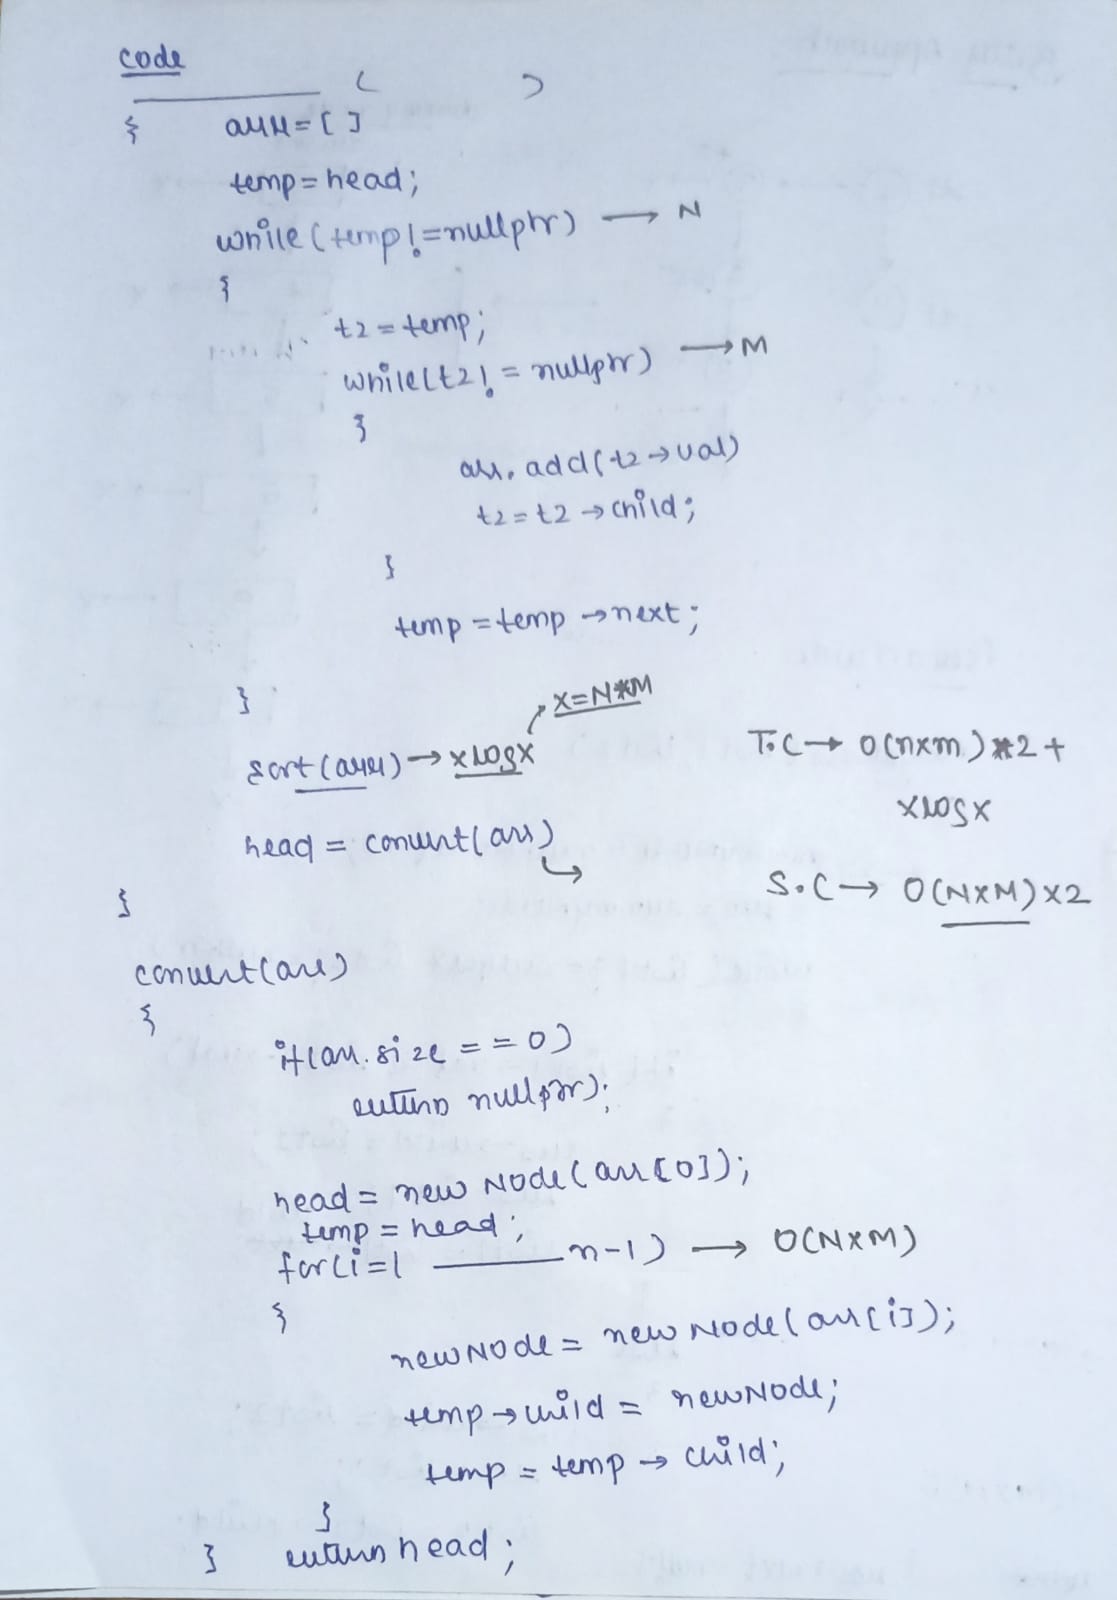 code
____ ( )
{ arr = [ ]
temp = head;
while (temp != nullptr) → N
{
t2 = temp;
while (t2 != nullptr) → M
{
arr.add(t2→val)
t2 = t2 → child;
}
temp = temp → next;
}
x = N*M
sort(arr) → xlogx
T.C → O(n×m)*2 +
xlogx
head = convert(arr)
S.C → O(N×M)×2
}
convert(arr)
{
if(arr.size == 0)
return nullptr);
head = new Node(arr[0]);
temp = head;
for(i=1 ____ n-1) → O(N×M)
{
newNode = new Node(arr[i]);
temp → child = newNode;
temp = temp → child;
}
} return head;